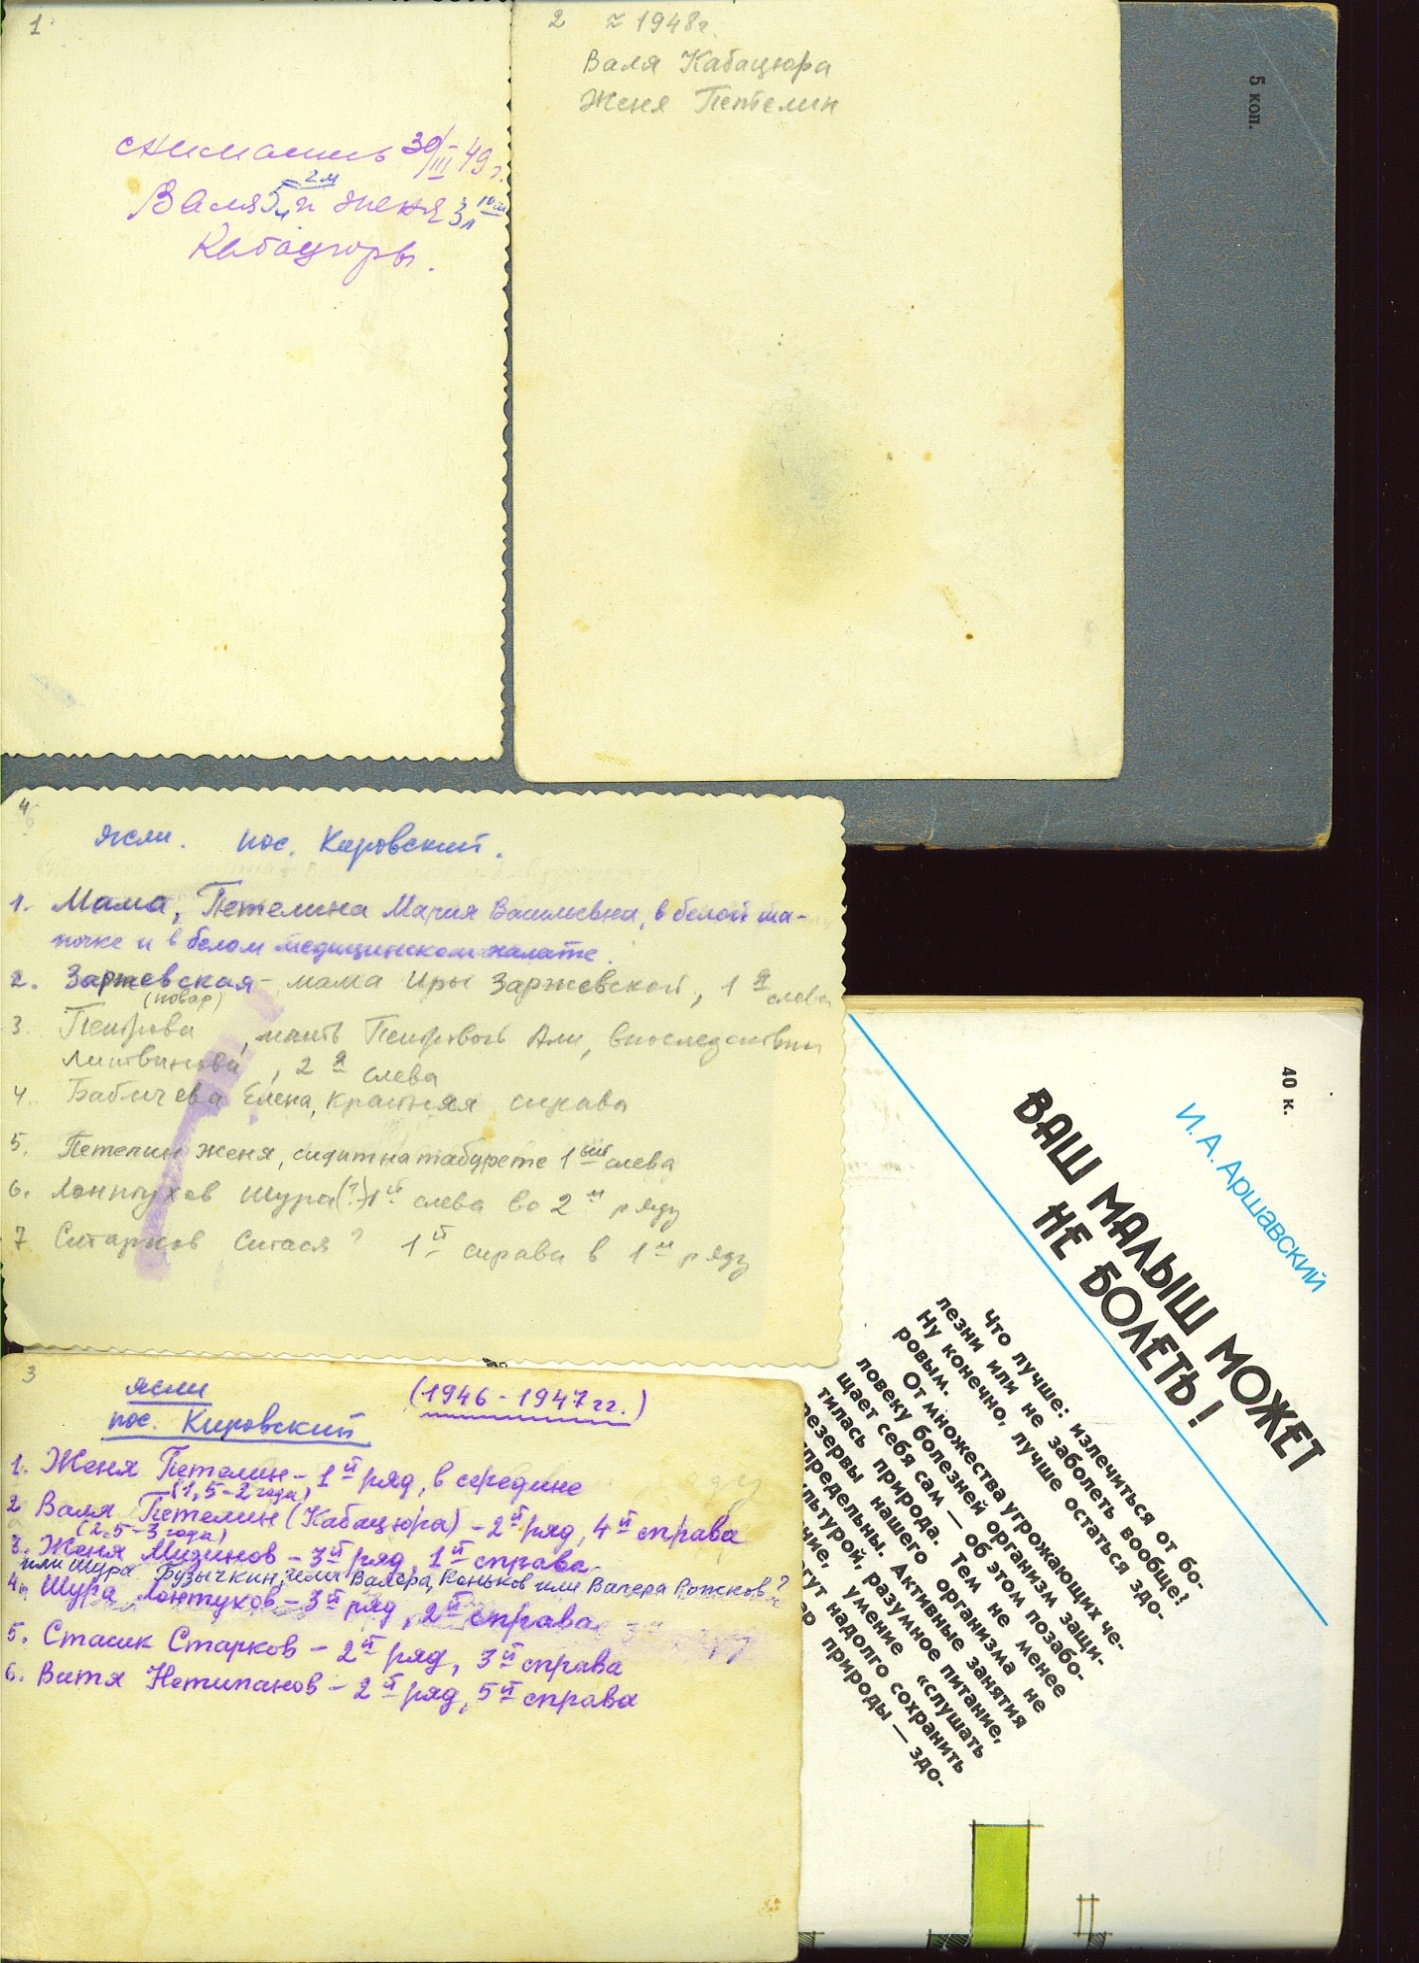 1
снимались 30/III 49 г.
2 м 10 м
Валя 5 л и Женя 3 л
Кабацюры.
2 ≈ 1948г.
Валя Кабацюра
Женя Петелин
5 коп.
4
Ясли. пос. Кировский.
1. Мама, Петелина Мария Васильевна, в белой ша-
почке и в белом медицинском халате.
2. Заржевская – мама Иры Заржевской, 1я слева
(повар)
3 Петрова, мать Петровой Али, впоследствии
Литвинова, 2я слева
4. Бабичева Елена, крайняя справа
5. Петелин Женя, сидит на табурете 1ый слева
6. Лонтухов Шура(?) 1й слева во 2м ряду
7 Старков Стася? 1й справа в 1м ряду
3
ясли (1946-1947 гг.)
пос. Кировский
1. Женя Петелин – 1й ряд, в середине
(1,5-2 года)
2 Валя Петелин (Кабацюра) – 2й ряд, 4й справа
(2,5-3 года)
3. Женя Мизинов – 3й ряд, 1й справа
или Шура Бузычкин, или Валера Коньков или Валера Рожков?
4. Шура Лонтухов – 3й ряд, 2й справа
5. Стасик Старков – 2й ряд, 3й справа
6. Витя Нетипанов – 2й ряд, 5й справа
40 к.
И. А. Аршавский
ВАШ МАЛЫШ МОЖЕТ
НЕ БОЛЕТЬ!
Что лучше: излечиться от бо-
лезни или не заболеть вообще?
Ну конечно, лучше остаться здо-
ровым.
От множества угрожающих че-
ловеку болезней организм защи-
щает себя сам — об этом позабо-
тилась природа. Тем не менее
резервы нашего организма не
предельны. Активные занятия
льтурой, разумное питание,
ние, умение «слушать
гут надолго сохранить
ар природы — здо-